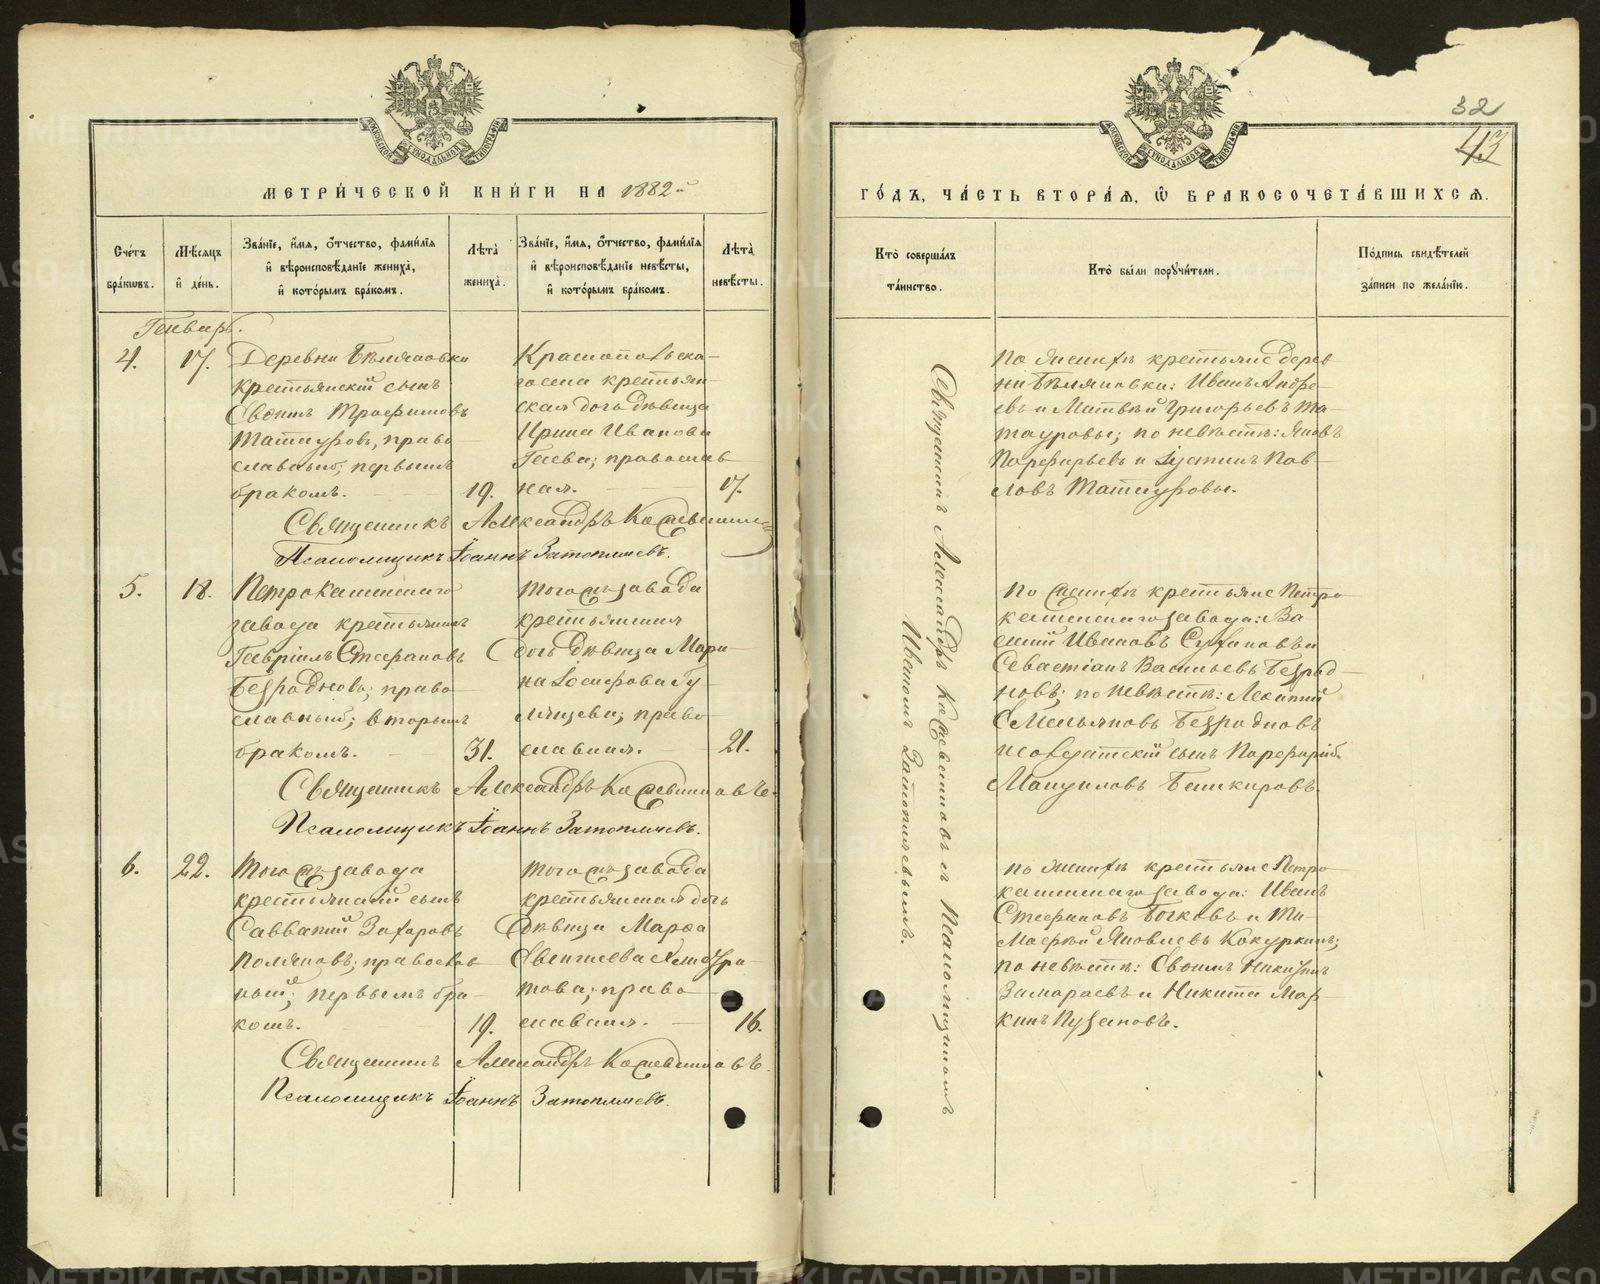 МЕТРИ́ЧЕСКОЙ КНИ́ГИ НА 1882-й
Сче́тъ бра́кωвъ.
Мѣ́сяцъ и҆ де́нь.
Зва́нїе, и҆́мя, ѻ҆́тчество, фами́лїя и҆ вѣроисповѣ́данїе жениха̀, и҆ кото́рымъ бра́комъ.
Лѣта̀ жениха̀.
Зва́нїе, и҆́мя, ѻ҆́тчество, фами́лїя и҆ вѣроисповѣ́данїе невѣ́сты, и҆ кото́рымъ бра́комъ.
Лѣта̀ невѣ́сты.
Генварь.
4.
17.
Деревни Бѣляковки
крестьянскій сынъ
Трофимовъ
Татауровъ, право
славный; первымъ
бракомъ.
19.
Краснопольска
го села крестьян
ская дочь дѣвица
Ирина Иванова
православ
ная.
17.
Священникъ Александръ
Псаломщикъ Іоаннъ Затопляевъ.
5.
18.
Петрокаменскаго
завода крестьянинъ
Гавріилъ Стефановъ
право
славный; вторымъ
бракомъ.
31.
Тогожъ завода
крестьянская
дочь дѣвица Мари
на Іосифова
право
славная.
21.
Священникъ Александръ
Псаломщикъ Іоаннъ Затопляевъ.
6.
22.
Тогожъ завода
крестьянскій сынъ
Савватій Захаровъ
Поляковъ; православ
ный; первымъ бра
комъ.
19.
Тогожъ завода
крестьянская дочь
дѣвица Марѳа
право
славная.
16.
Священникъ Александръ
Псаломщикъ Іоаннъ Затопляевъ.
32
43
ГО́ДЪ, ЧА́СТЬ ВТОРА́Я, Ѽ БРАКОСОЧЕТА́ВШИХСѦ.
Кто̀ соверша́лъ та́инство.
Кто̀ бы́ли поруч́ители.
По́дпись свидѣ́телей за́писи по жела́нїю.
Священникъ Александръ съ Псаломщикомъ
Иваномъ Затопляевымъ.
По женихѣ крестьяне дерев
ни Бѣляковки: Иванъ Андре
евъ и Матвѣй Григорьевъ Та
тауровы; по невѣстѣ: Яковъ
Порфирьевъ и Іустинъ Пав
ловъ Татауровы.
По женихѣ крестьяне Петро
каменскаго завода: Ва
силій Ивановъ
Севастіанъ Васильевъ Безрод
новъ; по невѣстѣ:
Емельяновъ Безродновъ
и солдатскій сынъ Порфирій
Мануиловъ Башкировъ.
По женихѣ крестьяне Петро
каменскаго завода: Иванъ
Стефановъ Бочковъ и Ти
моѳей Яковлевъ Кокуркинъ;
по невѣстѣ:
Замараевъ и Никита Мар
кинъ Пузановъ.